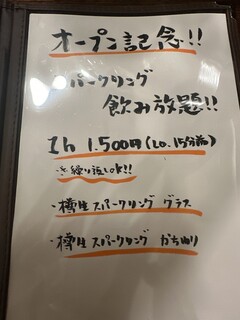 オープン記念!!
スパークリング
飲み放題!!
1h 1.500円(L.O. 15分前)
※繰り返しOK!!
・樽生スパークリング グラス
・樽生スパークリング かち割り